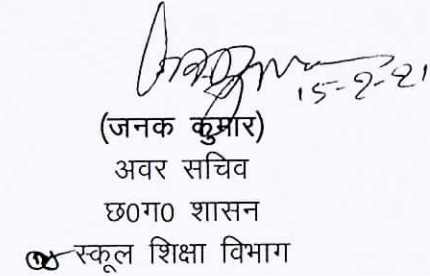 15-2-21
(जनक कुमार)
अवर सचिव
छ0ग0 शासन
स्कूल शिक्षा विभाग